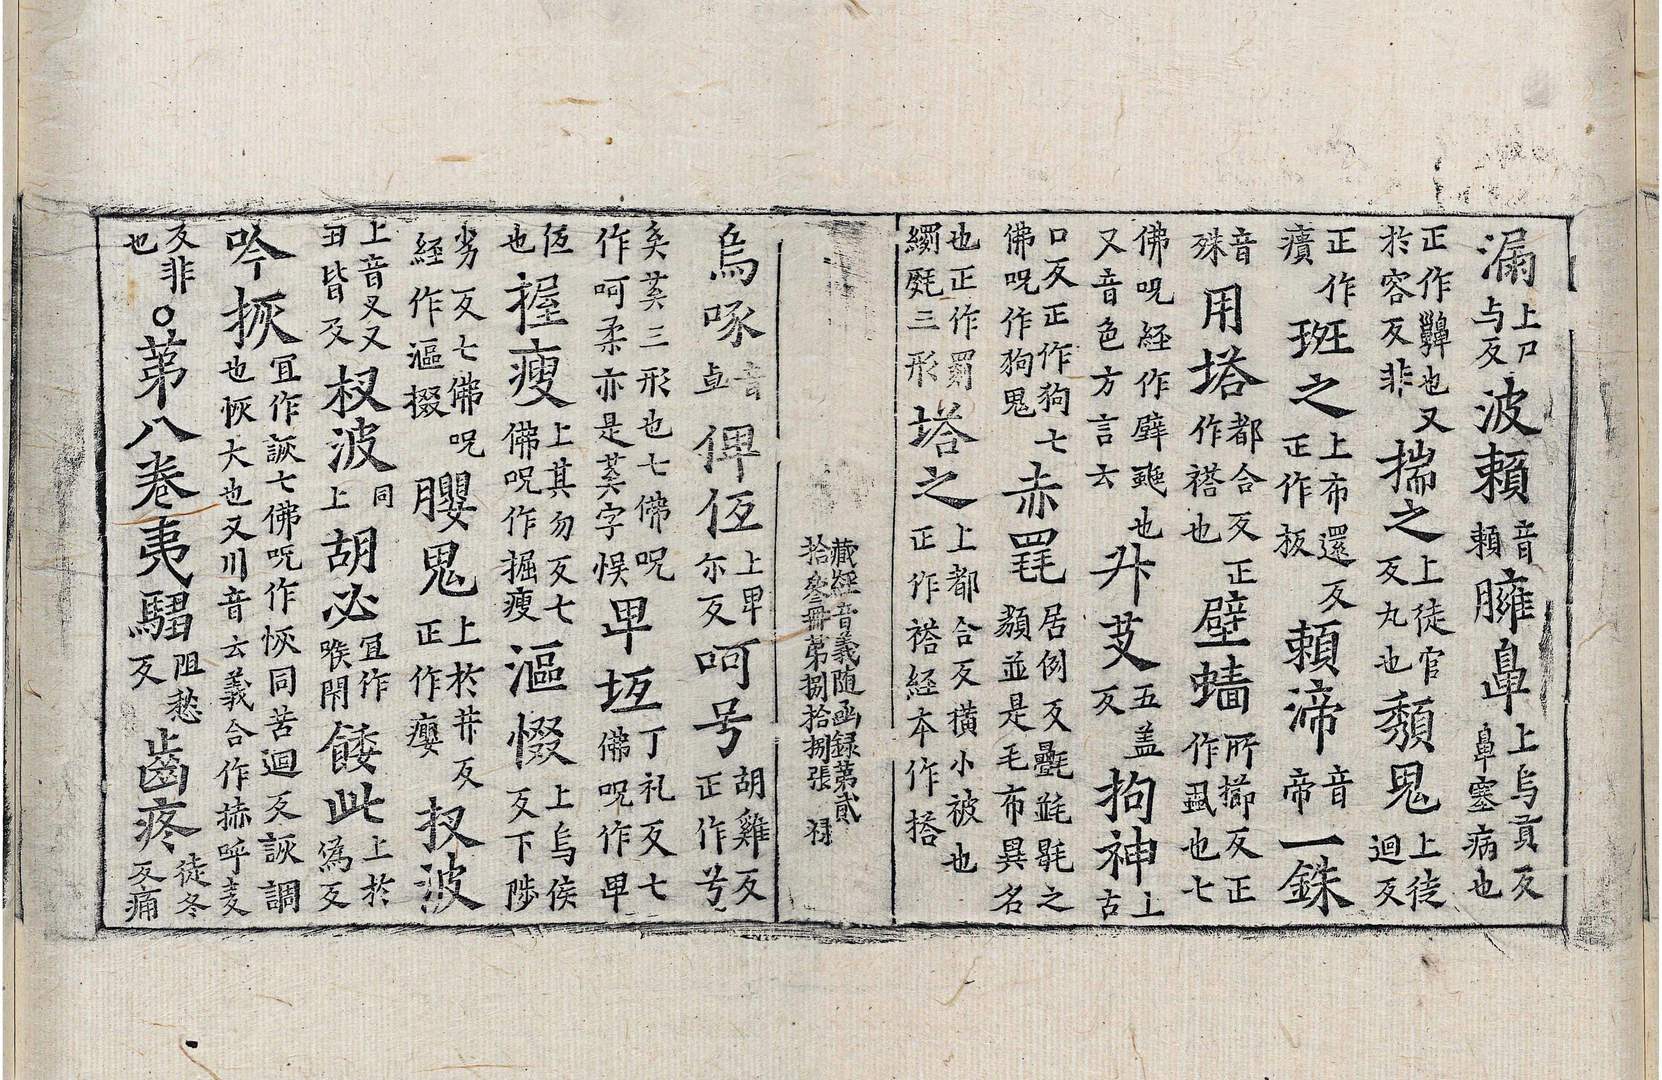 漏上尸与反波賴音賴臃鼻上烏貢反鼻塞病也
正作齆也又於容反非揣之上徒官反丸也頽鬼上徒迴反
正作㿉斑之上布還反正作板賴渧音帝一銖
音殊用塔都合反正作褡也壁蝤所擳反正作虱也七
佛呪經作壁𧌖也又音色方言云升芆五盖反拘神上古
口反正作狗七佛呪作狗鬼赤毣居例反氎㲲毼之纇並是毛布異名
也正作罽繝㲲三形塔之上都合反橫小被也正作褡經本作搭
藏經音義随函録第貳拾叄冊第捌拾捌張 禄
烏啄音卓俾仾上卑尓反呵号胡雞反正作兮
矣䒨三形也七佛呪作呵柔亦是䒨字悮卑坘丁礼反七佛呪作卑
仾也握瘦上其勿反七佛呪作掘瘦漚惙上烏侯反下陟
劣反七佛呪經作漚掇膯鬼上於井反正作癭扠波
上音叉又丑皆反杈波同上胡必冝作喉閉餧此上於為反
吟㧥冝作詼七佛呪作恢同苦迴反詼調也恢大也又川音云義合作㧥呼麦
反非也○第八卷夷騶阻愁反齒疼徒冬反痛